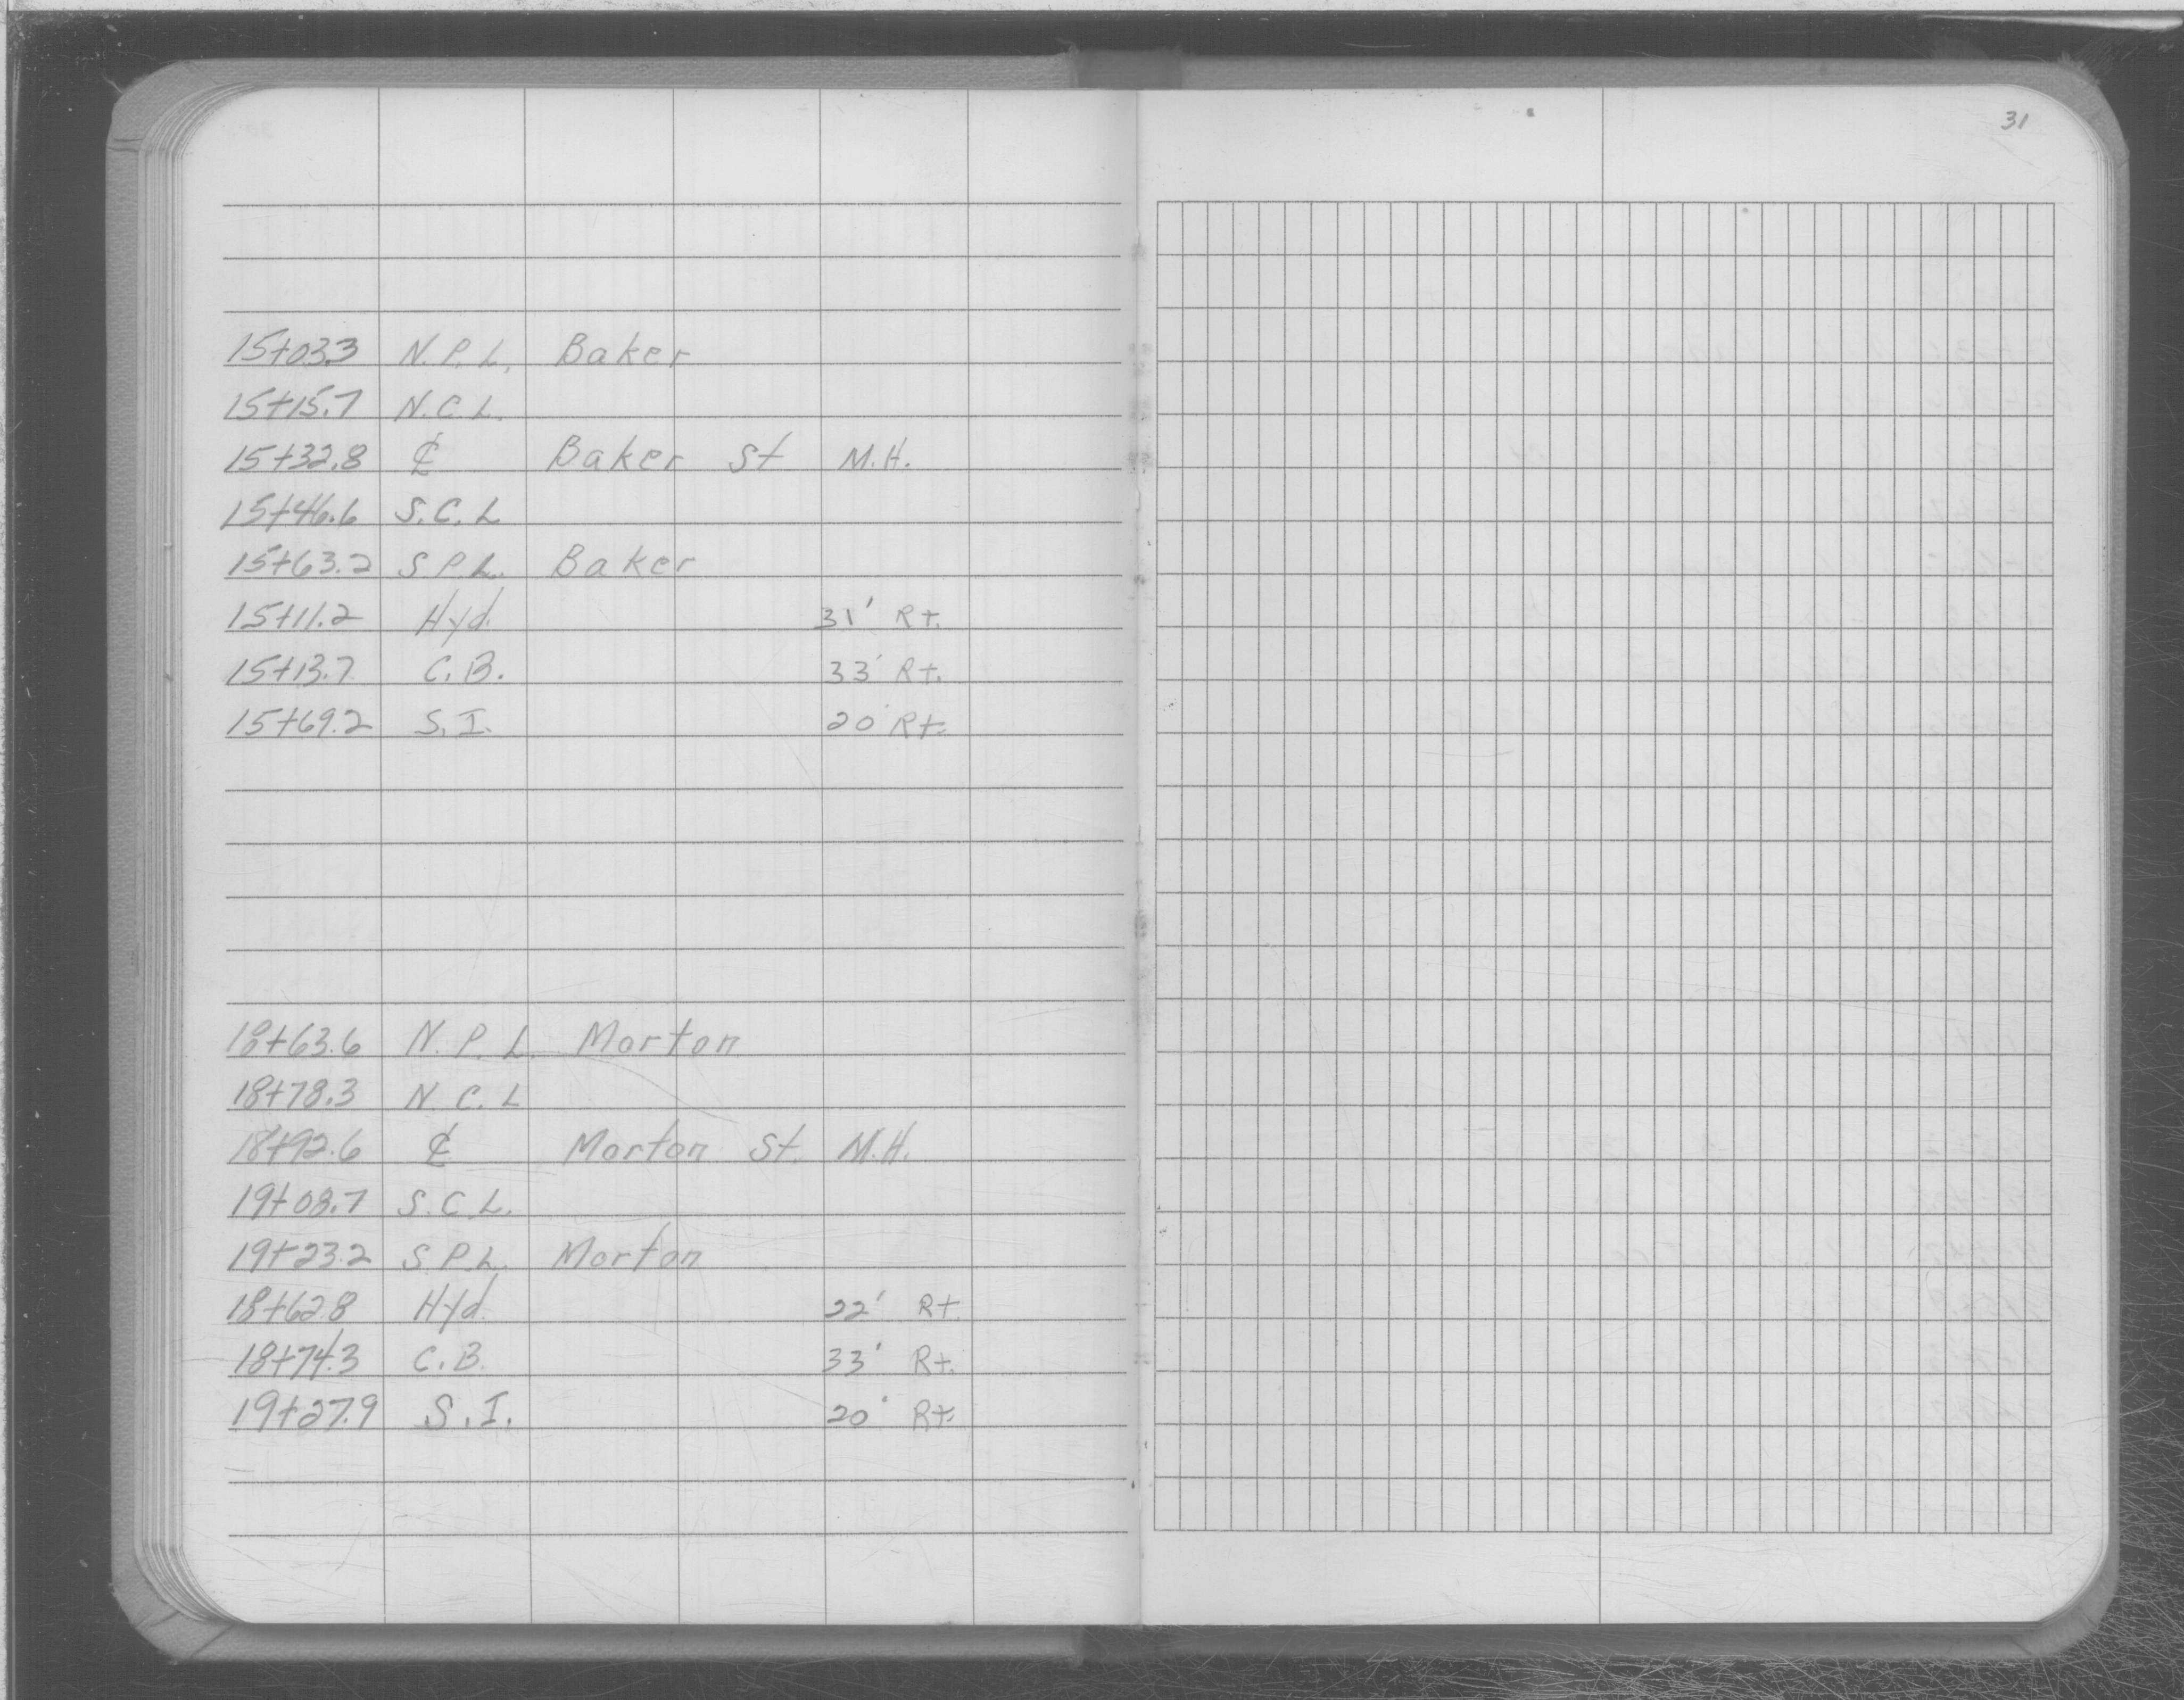 31
15+03.3 N.P.L. Baker
15+15.7 N.C.L.
15+32.8 ℄ Baker St M.H.
15+46.6 S.C.L
15+63.2 S.P.L. Baker
15+11.2 Hyd. 31' Rt.
15+13.7 C.B. 33' Rt.
15+69.2 S.I. 20' Rt.
18+63.6 N.P.L. Morton
18+78.3 N.C.L
18+92.6 ℄ Morton St. M.H.
19+08.7 S.C.L.
19+23.2 S.P.L. Morton
18+62.8 Hyd. 22' Rt.
18+74.3 C.B. 33' Rt.
19+27.9 S.I. 20' Rt.